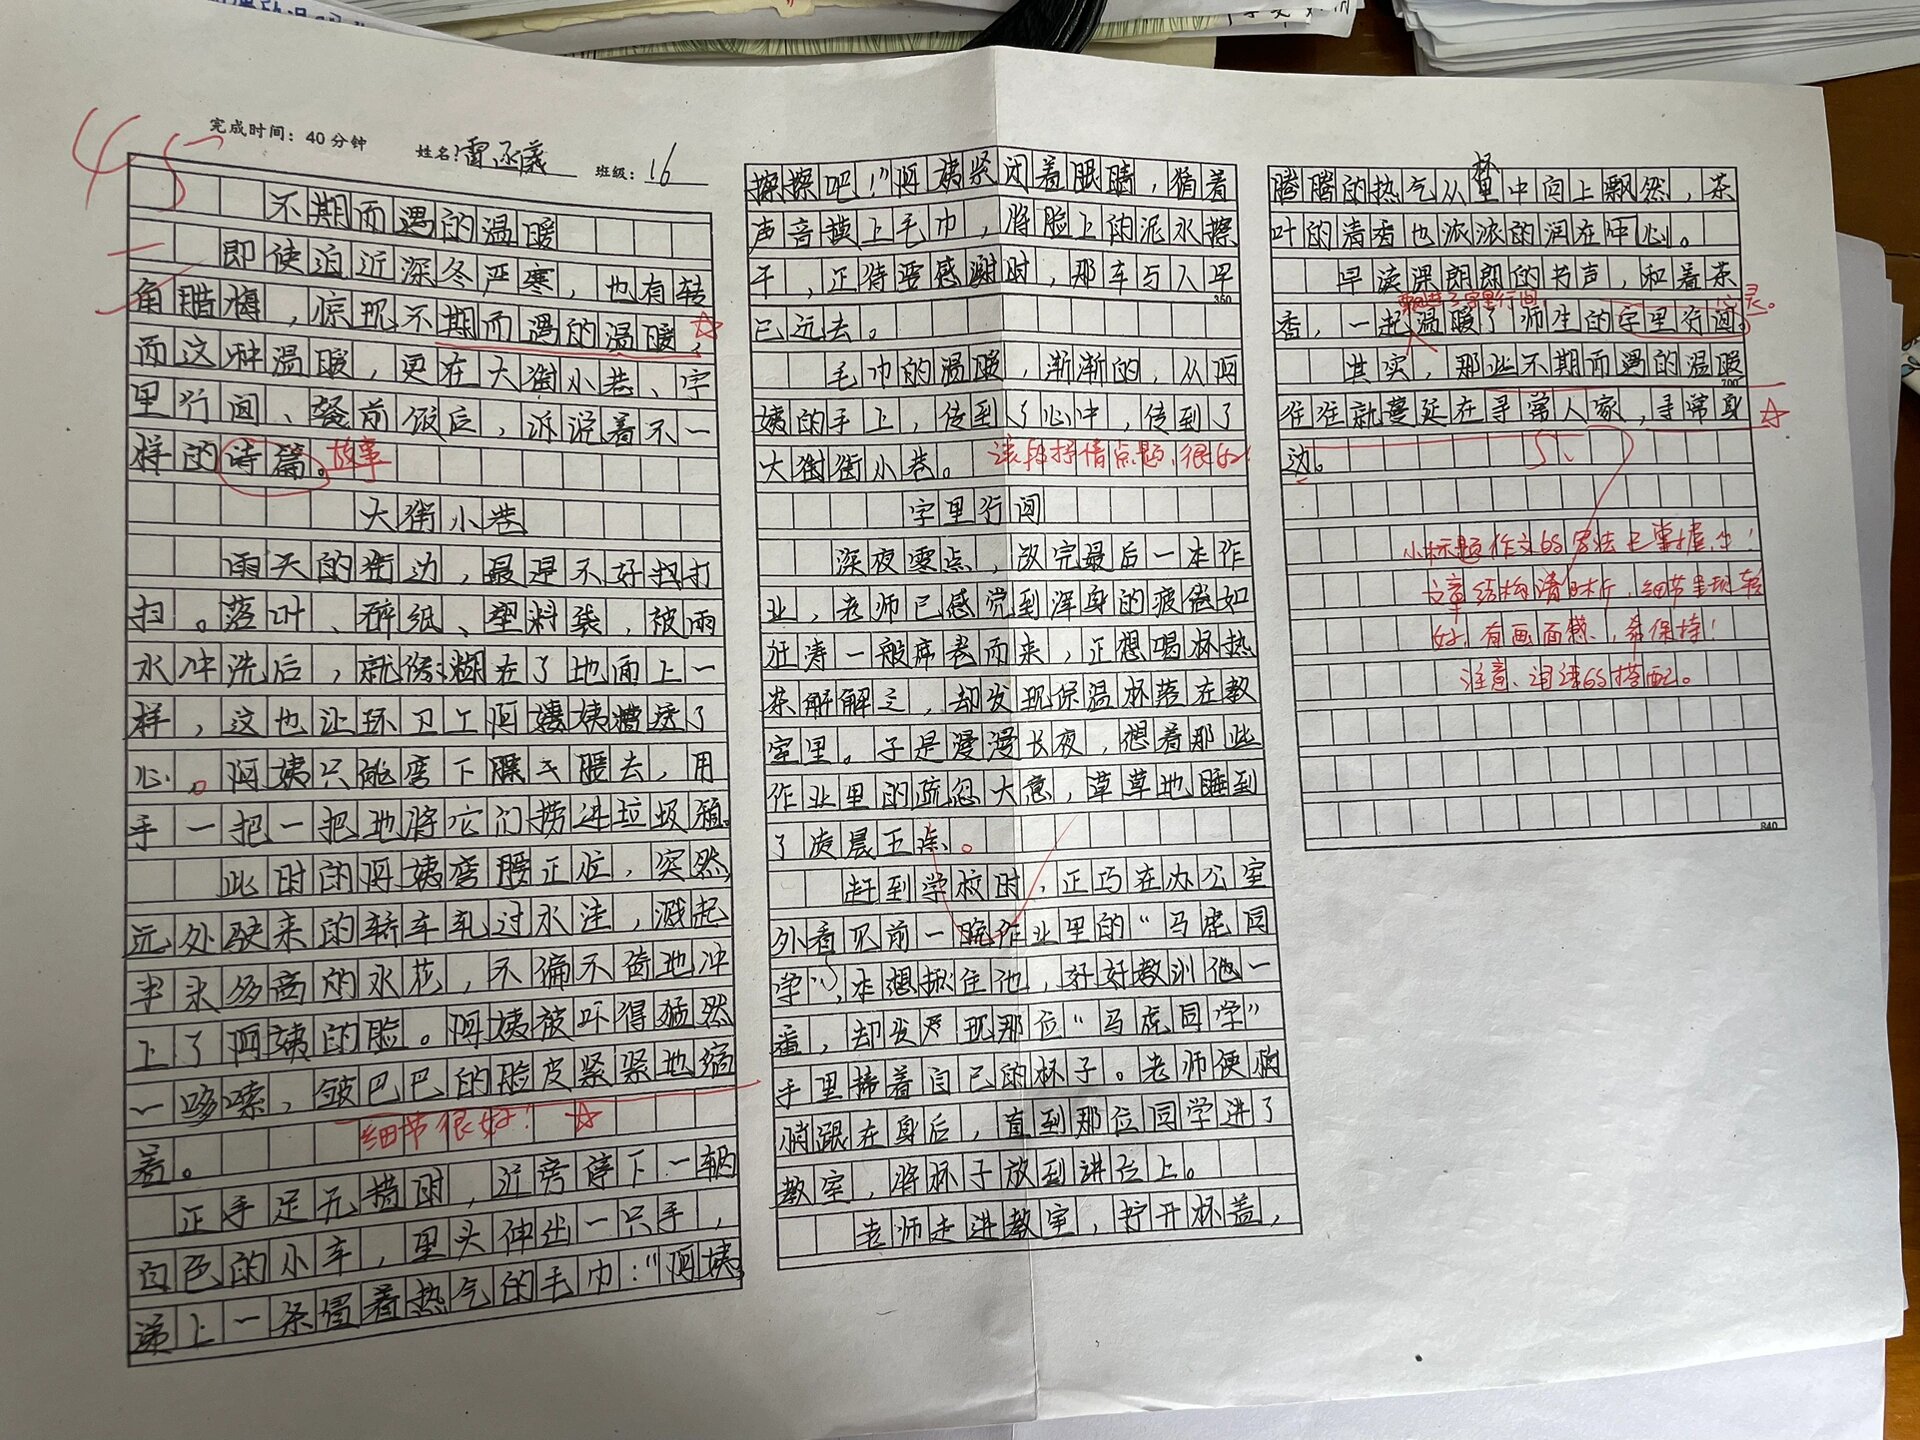 45
完成时间：40分钟 姓名：雷丞彧 班级：16
不期而遇的温暖
即使迫近深冬严寒，也有转
角腊梅，惊现不期而遇的温暖，
而这种温暖，更在大街小巷、字
里行间、餐前饭后，诉说着不一
样的诗篇。故事
大街小巷
雨天的街边，最是不好打
扫。落叶、碎纸、塑料袋，被雨
水冲洗后，就像糊在了地面上一
样，这也让环卫工阿姨糟透了
心。阿姨只能弯下腰去，用
手一把一把地将它们捞进垃圾箱。
此时的阿姨弯腰正后，突然，
远处驶来的轿车轧过水洼，溅起
半米多高的水花，不偏不倚地冲
上了阿姨的脸。阿姨被吓得猛然
一哆嗦，皱巴巴的脸皮紧紧地缩
着。
细节很好！
正手足无措时，近旁停下一辆
白色的小车，里头伸出一只手，
递上一条冒着热气的毛巾："阿姨，
擦擦吧！"阿姨紧闭着眼睛，循着
声音摸上毛巾，将脸上的泥水擦
干，正待要感谢时，那车与人早
350
已远去。
毛巾的温暖，渐渐的，从阿
姨的手上，传到了心中，传到了
大街街小巷。 该段抒情点题，很好
字里行间
深夜零点，改完最后一本作
业，老师已感觉到浑身的疲倦如
狂涛一般席卷而来，正想喝杯热
茶解解乏，却发现保温杯落在教
室里。于是漫漫长夜，想着那些
作业里的疏忽大意，草草地睡到
了凌晨五点。
赶到学校时，正巧在办公室
外看见前一晚作业里的"马虎同
学"，本想揪住他，好好教训他一
番，却发现那位"马虎同学"
手里捧着自己的杯子。老师便悄
悄跟在身后，直到那位同学进了
教室，将杯子放到讲台上。
老师走进教室，拧开杯盖，
腾腾的热气从杯里中向上飘然，茶
叶的清香也浓浓的润在中心。
早读课朗朗的书声，和着茶
飘进了字里行间，
香，一起温暖了师生的字里行间。心灵。
其实，那些不期而遇的温暖
700
往往就蔓延在寻常人家，寻常身
边。
小标题作文的写法已掌握！
文章结构清晰，细节呈现较
好，有画面感，希保持！
注意、词语的搭配。
840